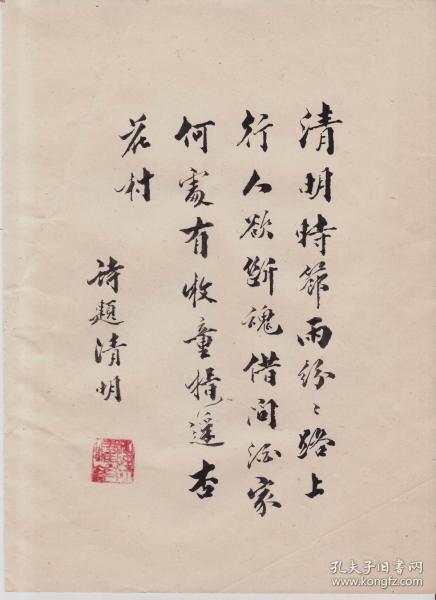 清明時節雨紛〻路上
行人欲斷魂借問酒家
何處有牧童携遥杏
花村
詩題清明
孔夫子旧书网
www.kongfz.com